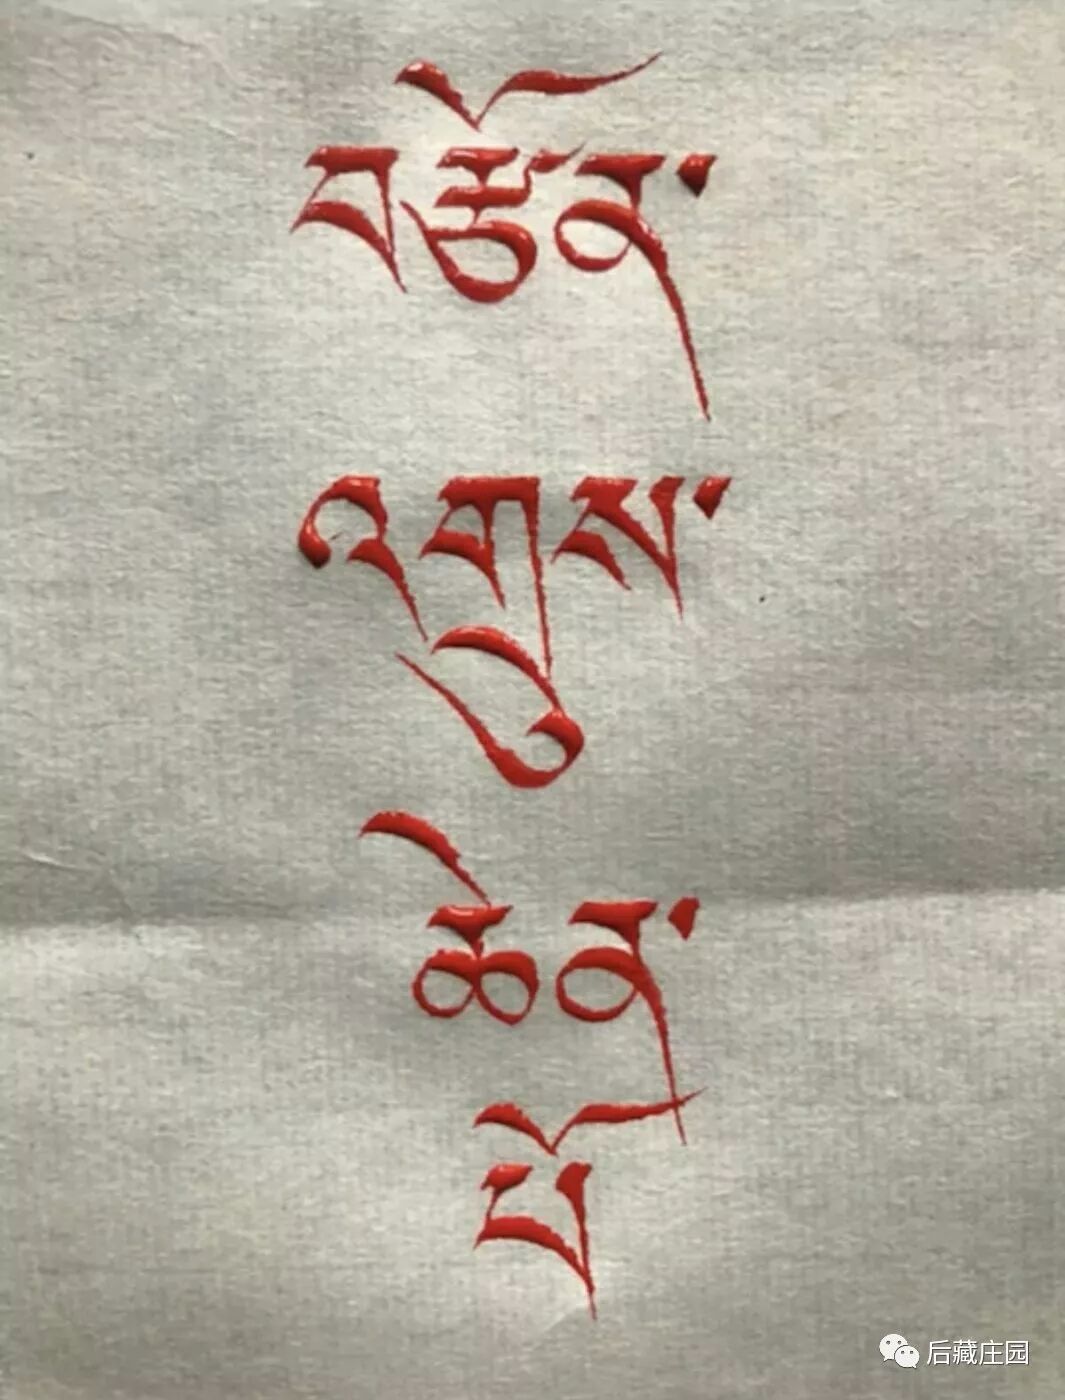 བརྩོན་
འགྲུས་
ཆེན་
པོ
后藏庄园